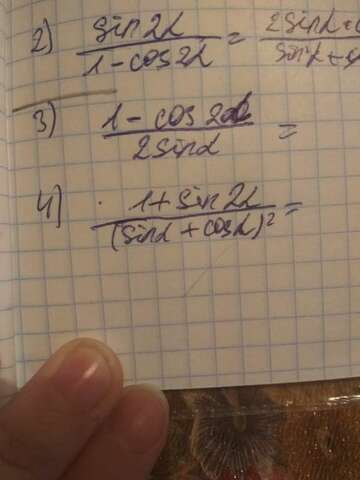 2) sin2α / 1 - cos2α = 2sinα / sin²α +
3) 1 - cos2α / 2sinα =
4) 1 + sin2α / (sinα + cosα)² =